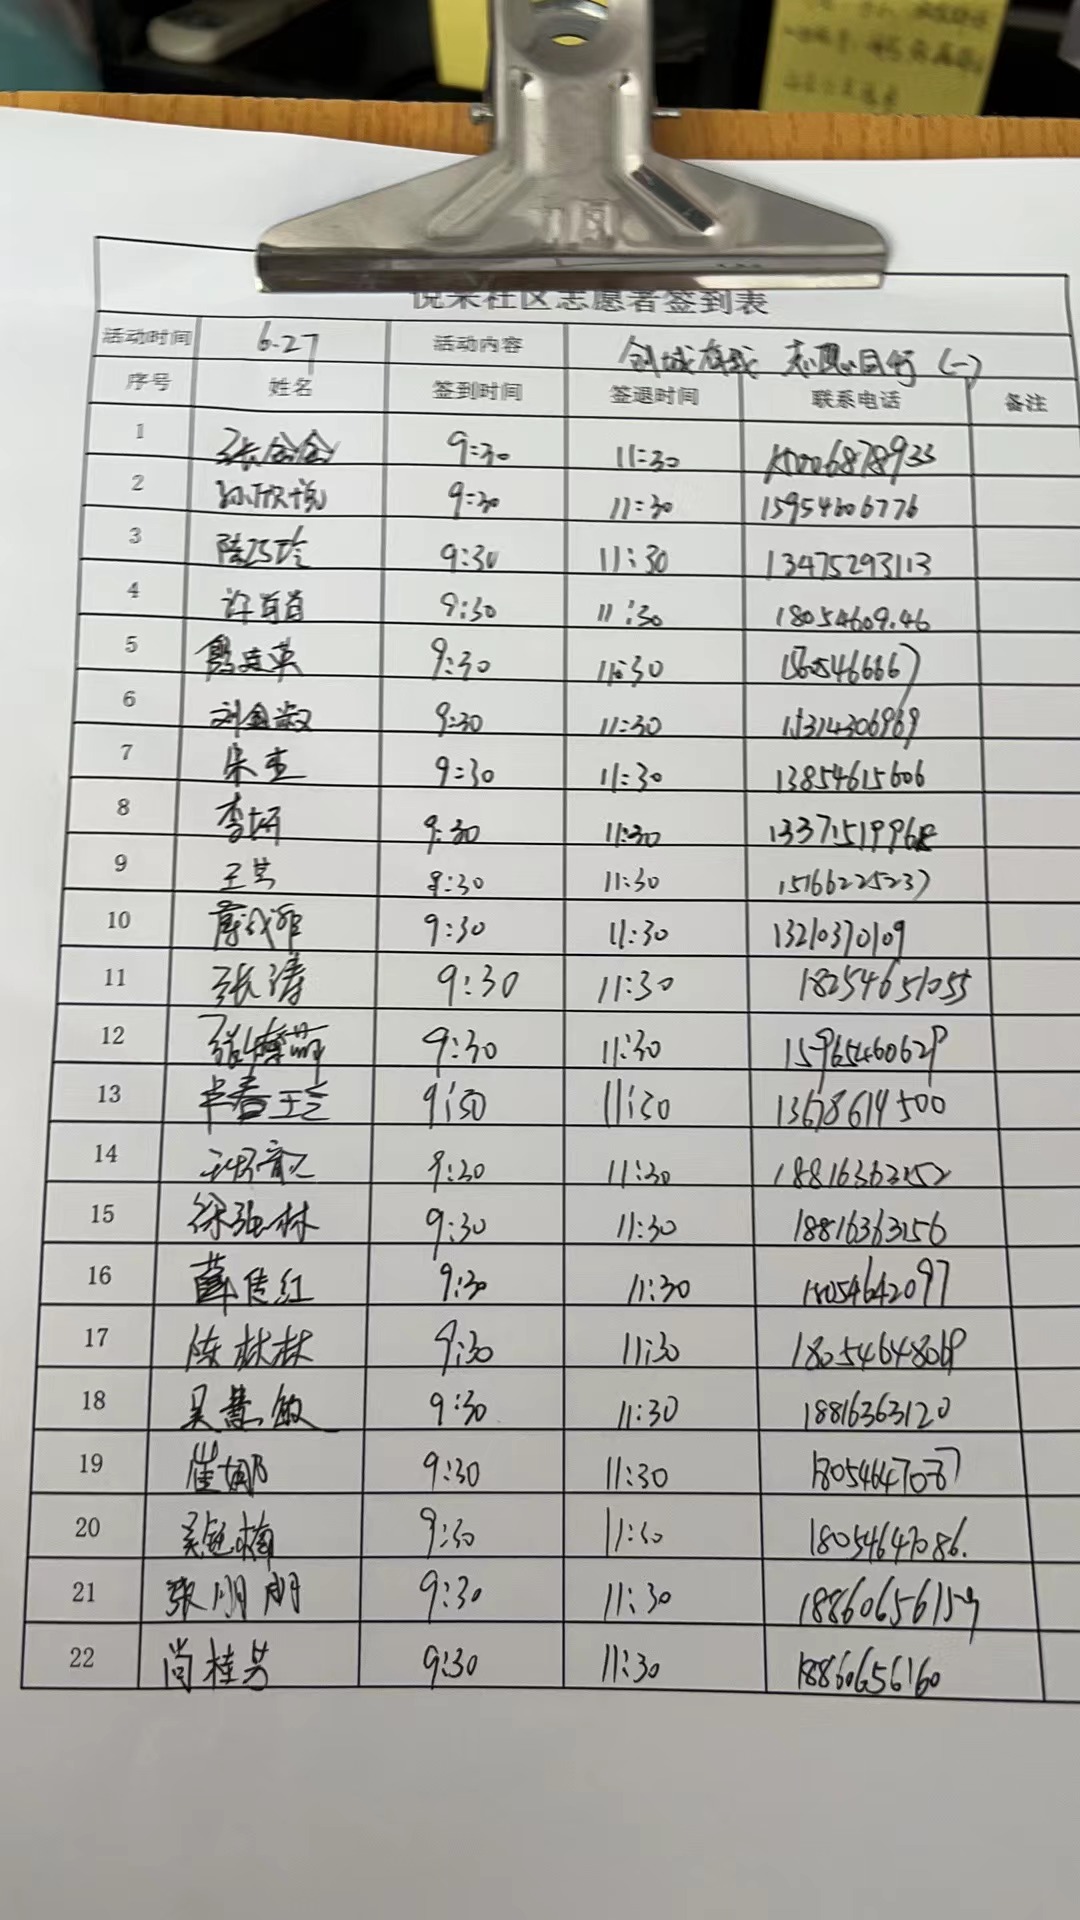 社区志愿者签到表
活动时间 6.27 活动内容 创城有我 志愿同行（一）
序号 姓名 签到时间 签退时间 联系电话 备注
1 9:30 11:30
2 孙欣悦 9:30 11:30 15954606776
3 陈巧玲 9:30 11:30 13475293113
4 许肖肖 9:30 11:30 18054609.46
5 9:30 11:30
6 刘金淑 9:30 11:30
7 朱杰 9:30 11:30 13854615606
8 李妍 9:30 11:30
9 9:30 11:30 15166225237
10 9:30 11:30 13210370109
11 张涛 9:30 11:30 18254651055
12 9:30 11:30 15965460629
13 9:30 11:30 13678614500
14 9:30 11:30 18816363152
15 徐强林 9:30 11:30 18816363156
16 薛佳红 9:30 11:30 18054642097
17 陈林林 9:30 11:30 18054648069
18 吴慧敏 9:30 11:30 18816363120
19 崔娜 9:30 11:30 18054647087
20 9:30 11:30 18054647086.
21 张朋朋 9:30 11:30 18860656159
22 尚桂芳 9:30 11:30 18860656160